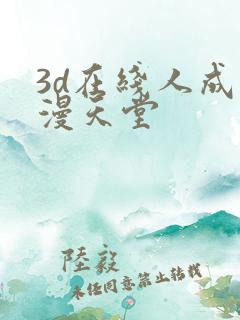 3d在綫人成
漫天堂
陸毅
未经同意禁止转载